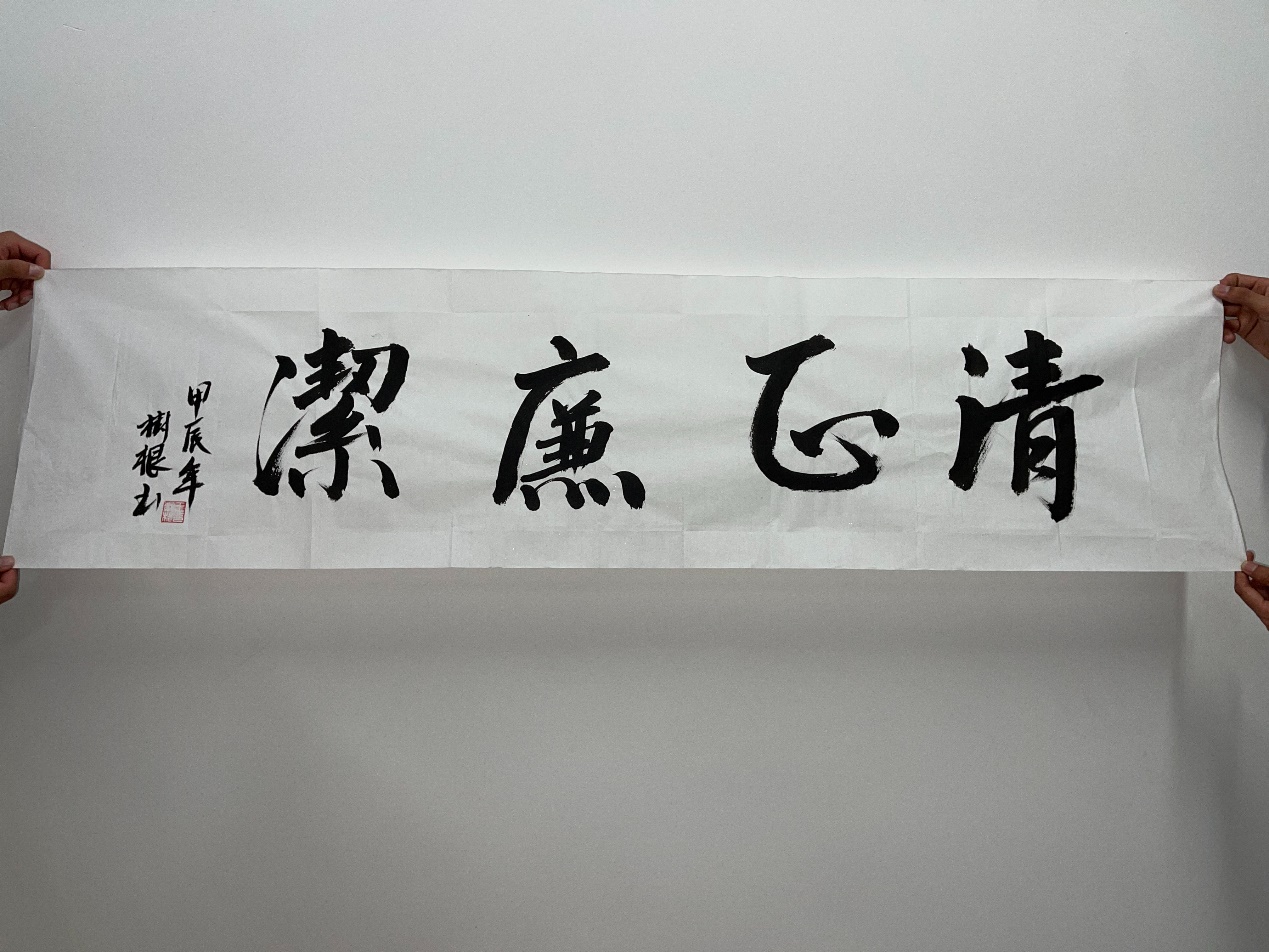 清正廉潔
甲辰年
樹根书